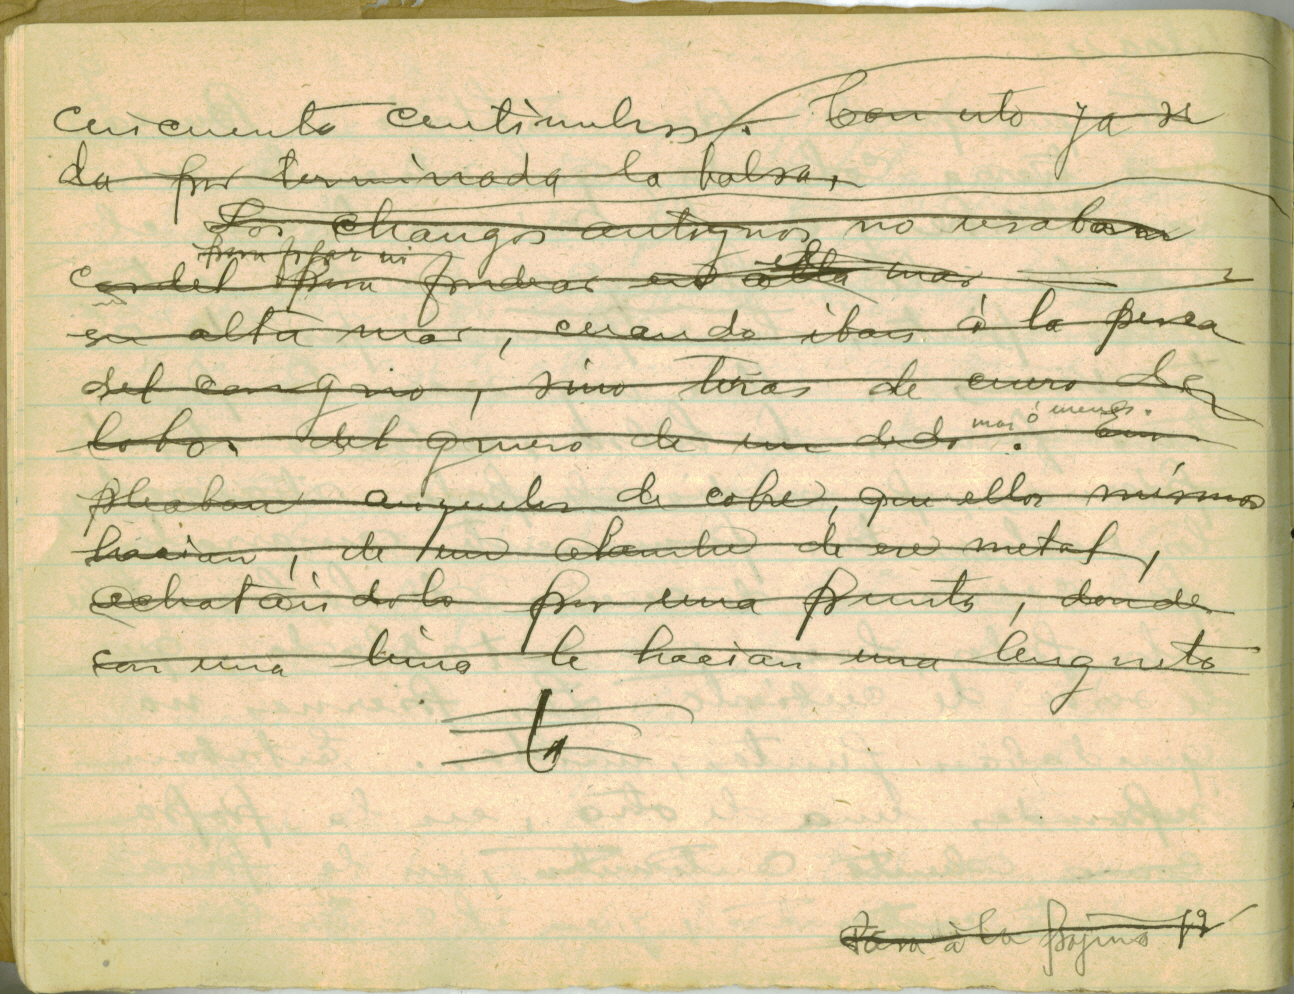 cincuenta centimetros. Con esto ya se
da por terminada la balsa.
Los changos antiguos no usaban
para fijar ni
cordel para fondear en alta mar
en alta mar, cuando iban à la pesca
del congrio, sino tiras de cuero de
mas ó menos.
lobo. del grueso de un dedo. Em
pleaban anzuelos de cobre, que ellos mismos
hacian, de un alambre de ese metal,
achatandolo por una punta, donde
con una lima le hacian una lengueta
Pasa à la pagina 19